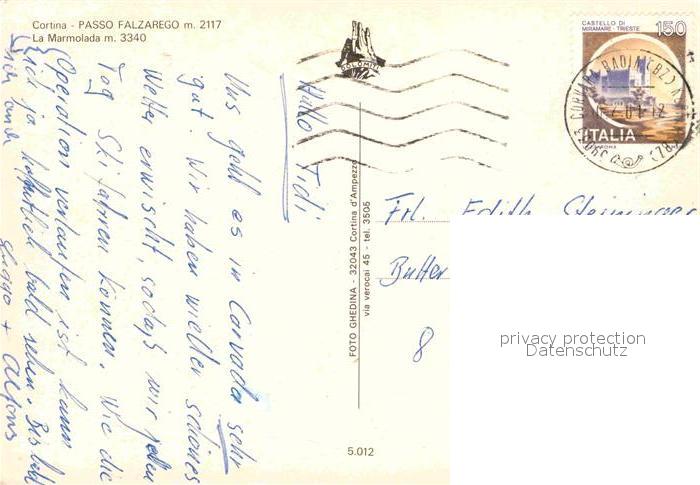 Cortina - PASSO FALZAREGO m. 2117
La Marmolada m. 3340
CASTELLO DI
MIRAMARE - TRIESTE
150
ITALIA
DOLOMITI
Hallo Tidi
Uns geht es in Corvada sehr
gut. Wir haben wieder schönes
Wetter erwischt, sodaß wir jeden
Tag Ski fahren können. Wie die
Operation verlaufen ist kann
ich ja hoffentlich bald sehen. Bis bald
Alfons
FOTO GHEDINA - 32043 Cortina d'Ampezzo
via verocai 45 - tel. 3505
Frl. Edith
8
5.012
privacy protection
Datenschutz